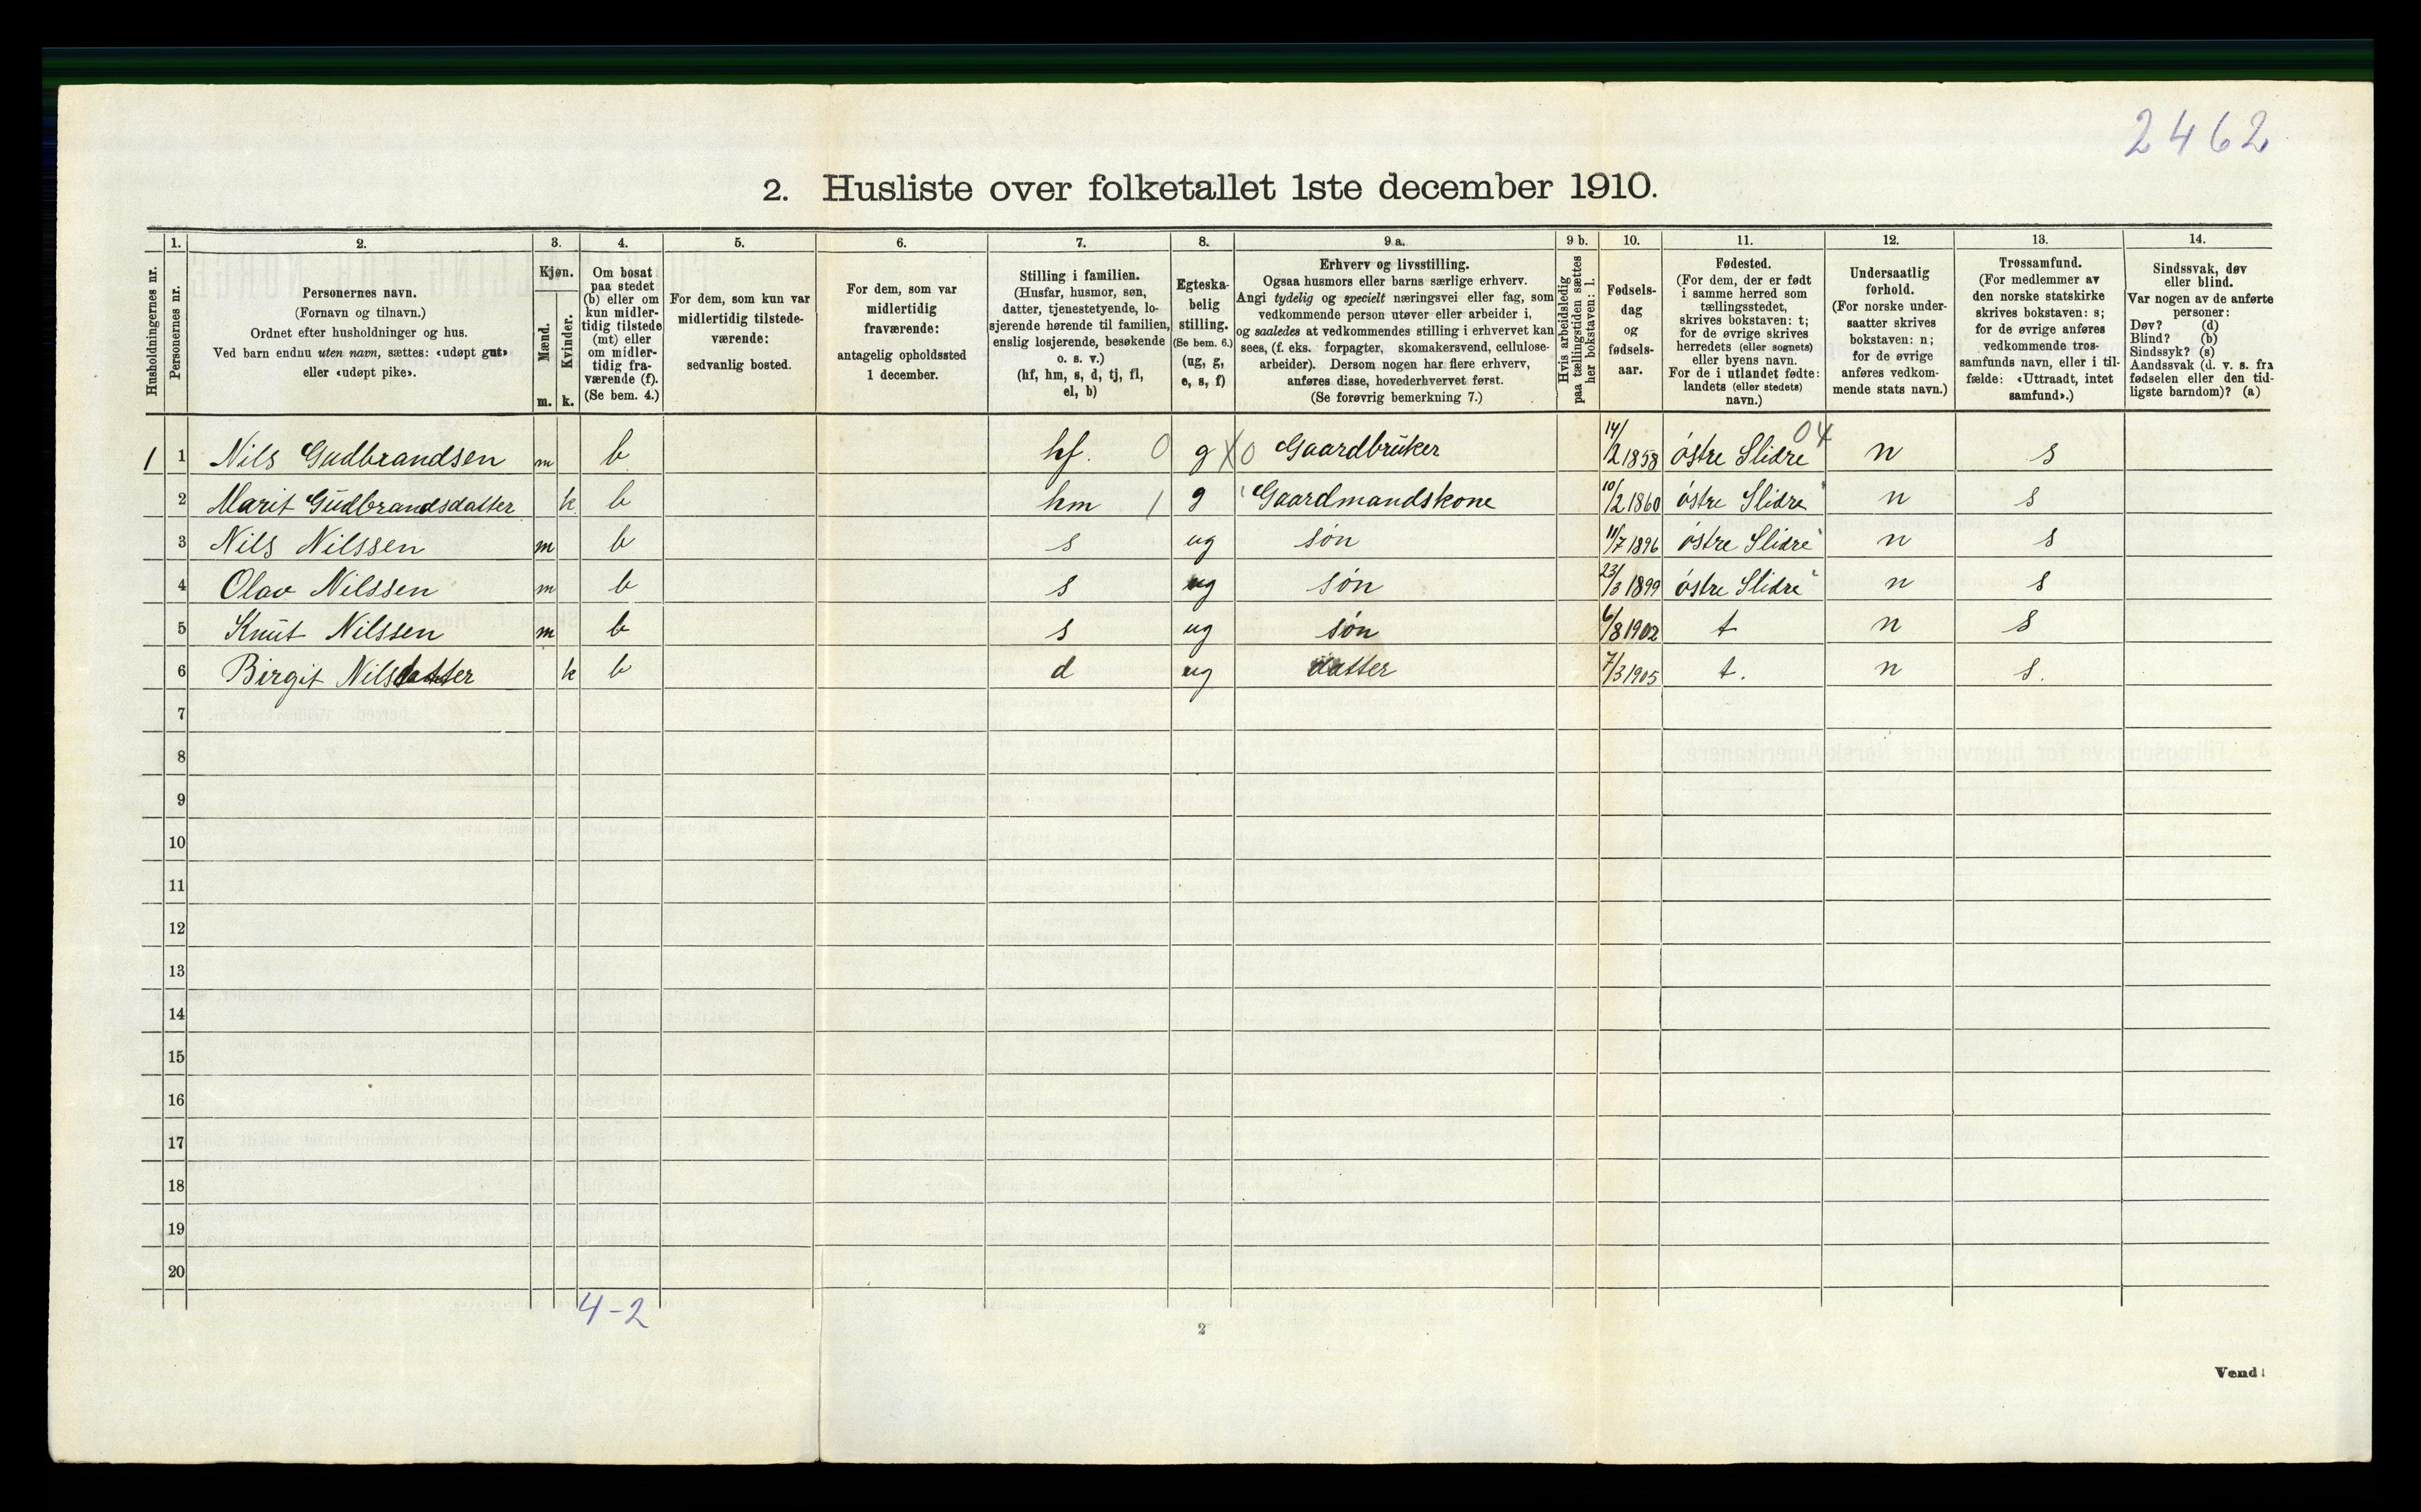 2462
2. Husliste over folketallet 1ste december 1910.
1. 2. 3. 4. 5. 6. 7. 8. 9 a. 9 b. 10. 11. 12. 13. 14.
Husholdningernes nr.
Personernes nr.
Personernes navn.
(Fornavn og tilnavn.)
Ordnet efter husholdninger og hus.
Ved barn endnu uten navn, sættes: «udøpt gut»
eller «udøpt pike».
Kjøn.
Mænd.
Kvinder.
m. k.
Om bosat
paa stedet
(b) eller om
kun midler-
tidig tilstede
(mt) eller
om midler-
tidig fra-
værende (f).
(Se bem. 4.)
For dem, som kun var
midlertidig tilstede-
værende:
sedvanlig bosted.
For dem, som var
midlertidig
fraværende:
antagelig opholdssted
1 december.
Stilling i familien.
(Husfar, husmor, søn,
datter, tjenestetyende, lo-
sjerende hørende til familien,
enslig losjerende, besøkende
o. s. v.)
(hf, hm, s, d, tj, fl,
el, b)
Egteska-
belig
stilling.
(Se bem. 6.)
(ug, g,
e, s, f)
Erhverv og livsstilling.
Ogsaa husmors eller barns særlige erhverv.
Angi tydelig og specielt næringsvei eller fag, som
vedkommende person utøver eller arbeider i,
og saaledes at vedkommendes stilling i erhvervet kan
sees, (f. eks. forpagter, skomakersvend, cellulose-
arbeider). Dersom nogen har flere erhverv,
anføres disse, hovederhvervet først.
(Se forøvrig bemerkning 7.)
Hvis arbeidsledig
paa tællingstiden sættes
her bokstaven: l.
Fødsels-
dag
og
fødsels-
aar.
Fødested.
(For dem, der er født
i samme herred som
tællingsstedet,
skrives bokstaven: t;
for de øvrige skrives
herredets (eller sognets)
eller byens navn.
For de i utlandet fødte:
landets (eller stedets)
navn.)
Undersaatlig
forhold.
(For norske under-
saatter skrives
bokstaven: n;
for de øvrige
anføres vedkom-
mende stats navn.)
Trossamfund.
(For medlemmer av
den norske statskirke
skrives bokstaven: s;
for de øvrige anføres
vedkommende tros-
samfunds navn, eller i til-
fælde: «Uttraadt, intet
samfund».)
Sindssvak, døv
eller blind.
Var nogen av de anførte
personer:
Døv? (d)
Blind? (b)
Sindssyk? (s)
Aandssvak (d. v. s. fra
fødselen eller den tid-
ligste barndom)? (a)
04
1 1 Nils Gudbrandsen m b hf. 0 g X0 Gaardbruker 14/2 1858 østre Slidre n s
2 Marit Gudbrandsdatter k b hm 1 g Gaardmandskone 10/2 1860 østre Slidre n s
3 Nils Nilssen m b s ug søn 11/7 1896 østre Slidre n s
4 Olav Nilssen m b s ug søn 23/3 1899 østre Slidre n s
5 Knut Nilssen m b s ug søn 6/8 1902 t n s
6 Birgit Nilsdatter k b d ug datter 7/3 1905 t. n s.
7
8
9
10
11
12
13
14
15
16
17
18
19
20
4-2
2
Vend!